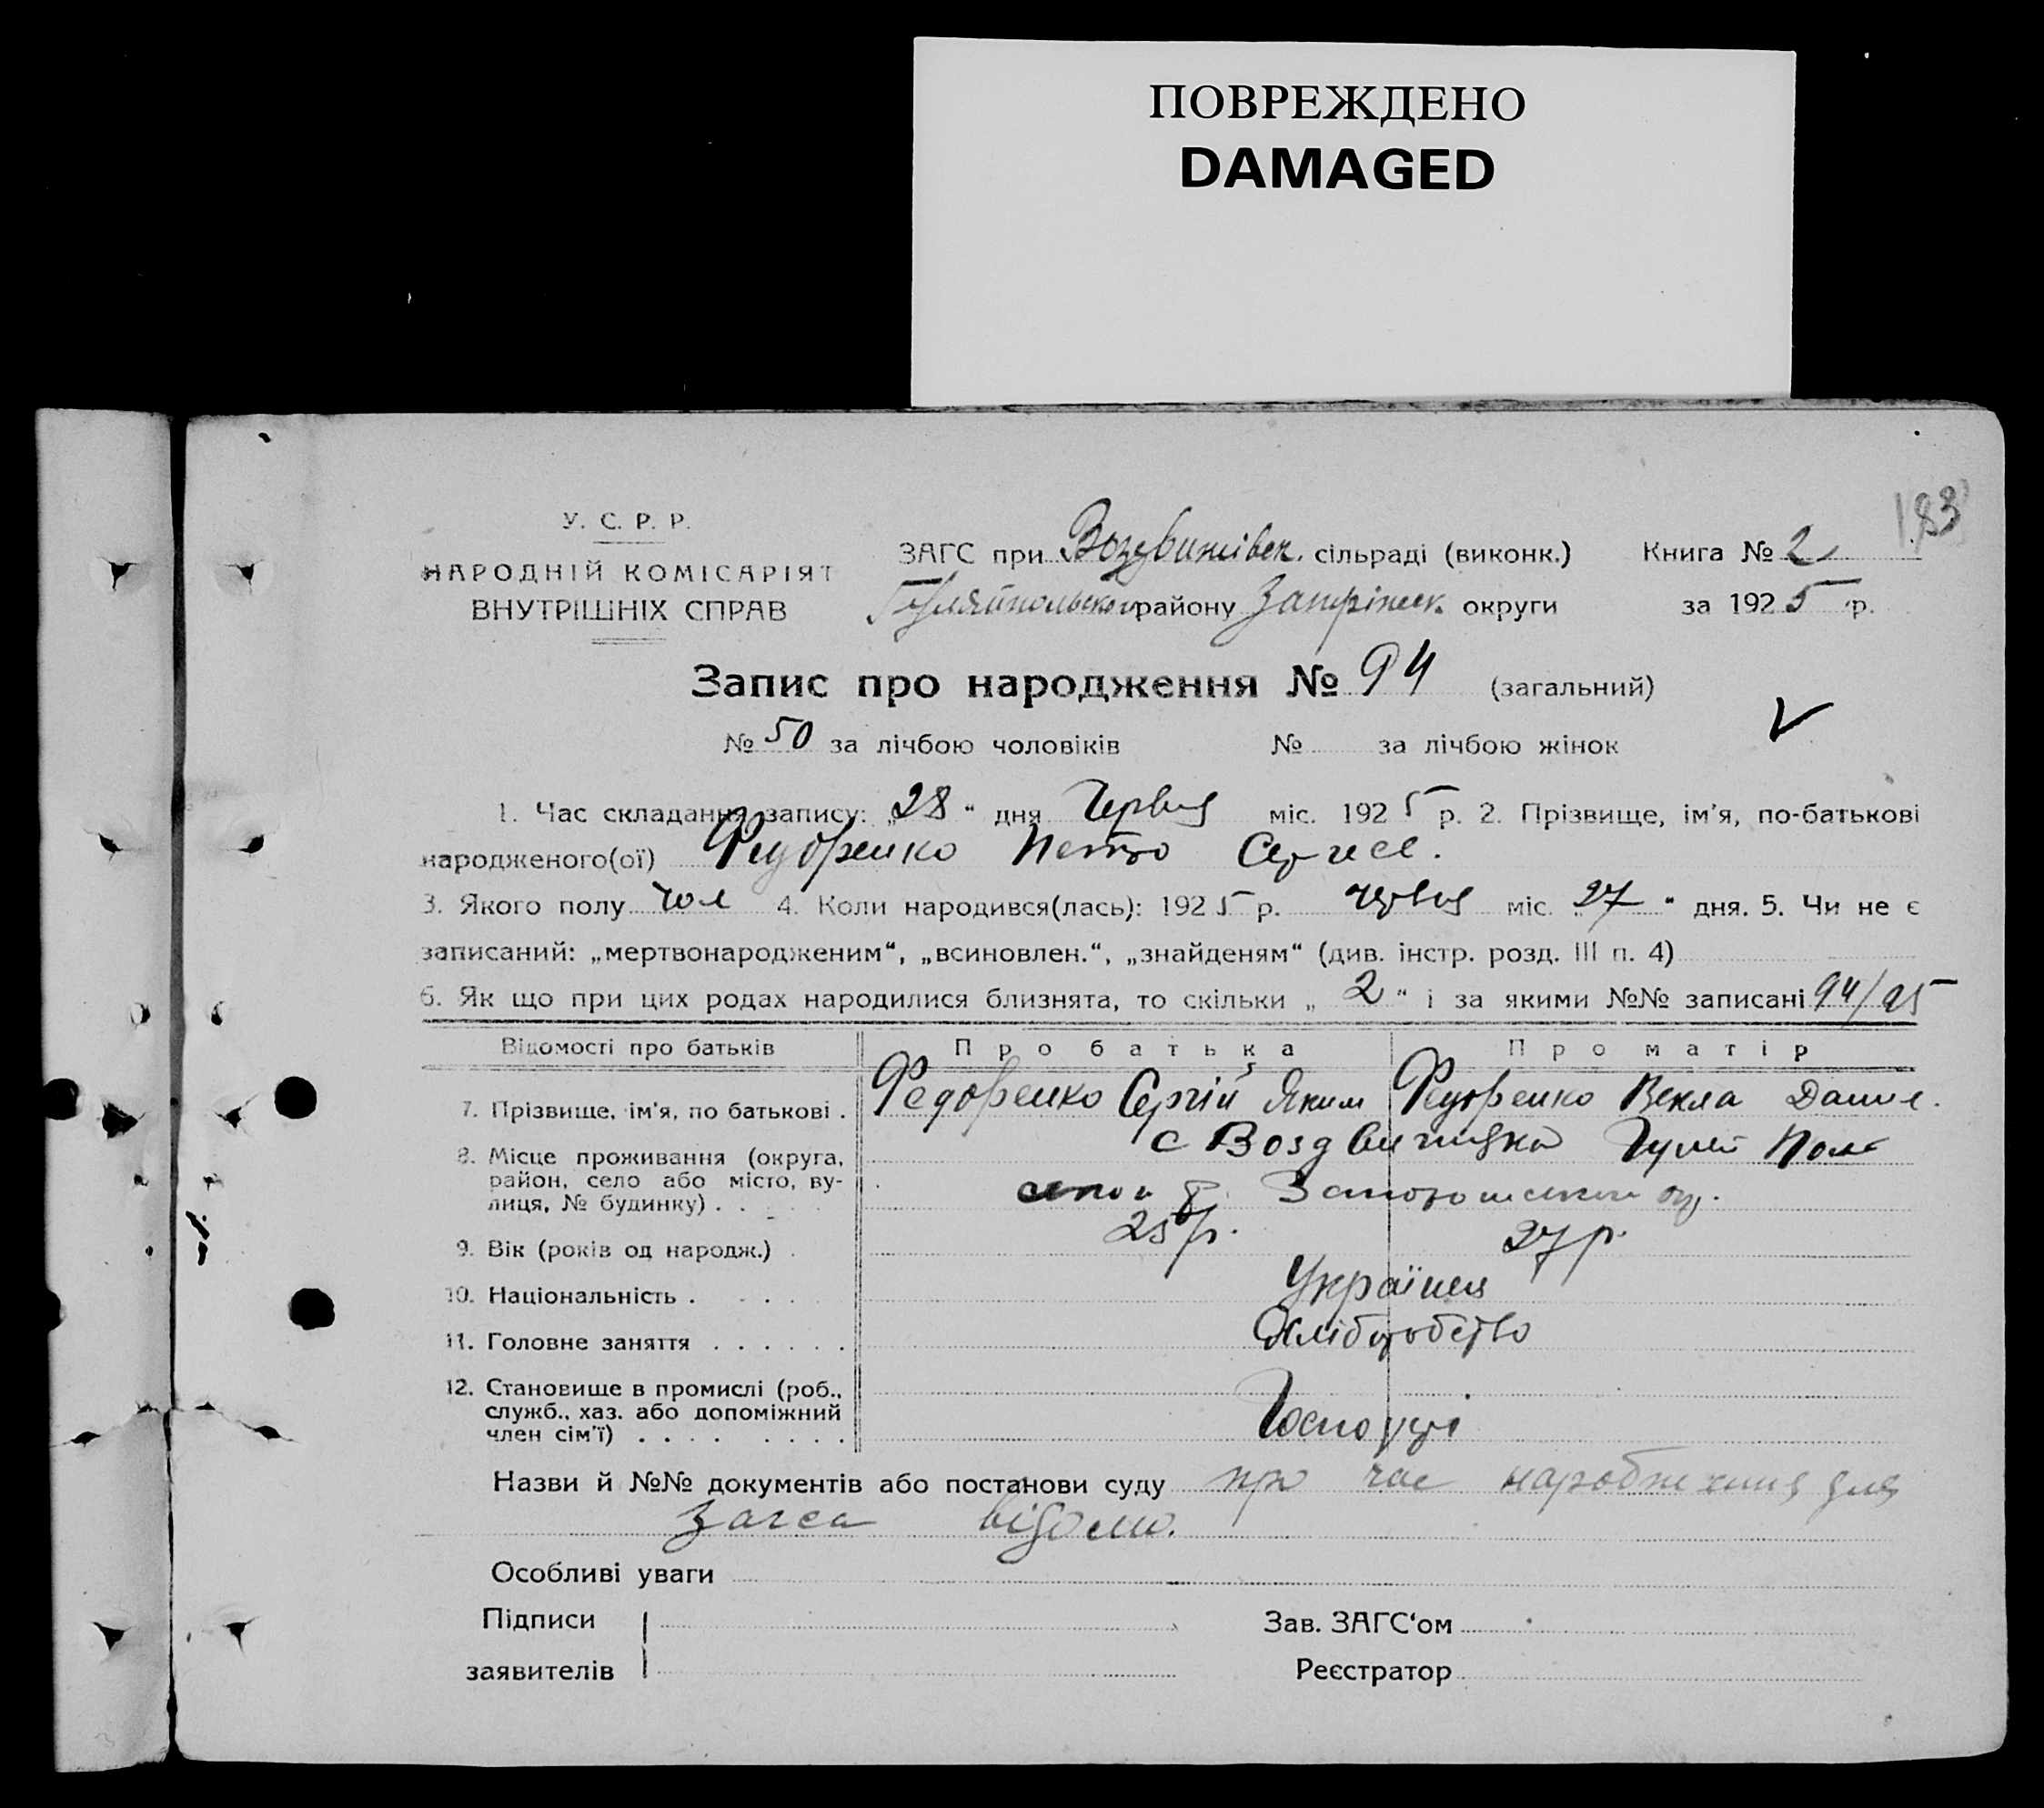 ПОВРЕЖДЕНО
DAMAGED
183
У. С. Р. Р.
НАРОДНІЙ КОМІСАРІЯТ
ВНУТРІШНІХ СПРАВ
ЗАГС при Воздвижівск. сільраді (виконк.) Книга № 2
Гуляйпольского району Запріжск. округи за 1925 р.
Запис про народження № 94 (загальний)
№ 50 за лічбою чоловіків № за лічбою жінок
1. Час складання запису: „28“ дня Червня міс. 1925 р. 2. Прізвище, ім'я, по-батькові
народженого(ої) Федоренко Петро Сергеев.
3. Якого полу чол 4. Коли народився(лась): 1925 р. червня міс. „27“ дня. 5. Чи не є
записаний: „мертвонародженим“, „всиновлен.“, „знайденям“ (див. інстр. розд. III п. 4)
6. Як що при цих родах народилися близнята, то скільки „2“ і за якими №№ записані 94/95
Відомості про батьків Про батька Про матір
7. Прізвище, ім'я, по батькові . Федоренко Сергій Яким Федоренко Векла Данил.
8. Місце проживання (округа, район, село або місто, вулиця, № будинку) . . с Воздвижцка Гуляй Поль
Запорожськои ок.
9. Вік (років од народж.) . 25 р. 27 р.
10. Національність . . . . Українця
11. Головне заняття . . . . . . Хліборобство
12. Становище в промислі (роб.,
служб., хаз. або допоміжний
член сім'ї) . . . . . . . . Господарі
Назви й №№ документів або постанови суду про час народження для
загса відомо.
Особливі уваги
Підписи Зав. ЗАГС'ом
заявителів Реєстратор